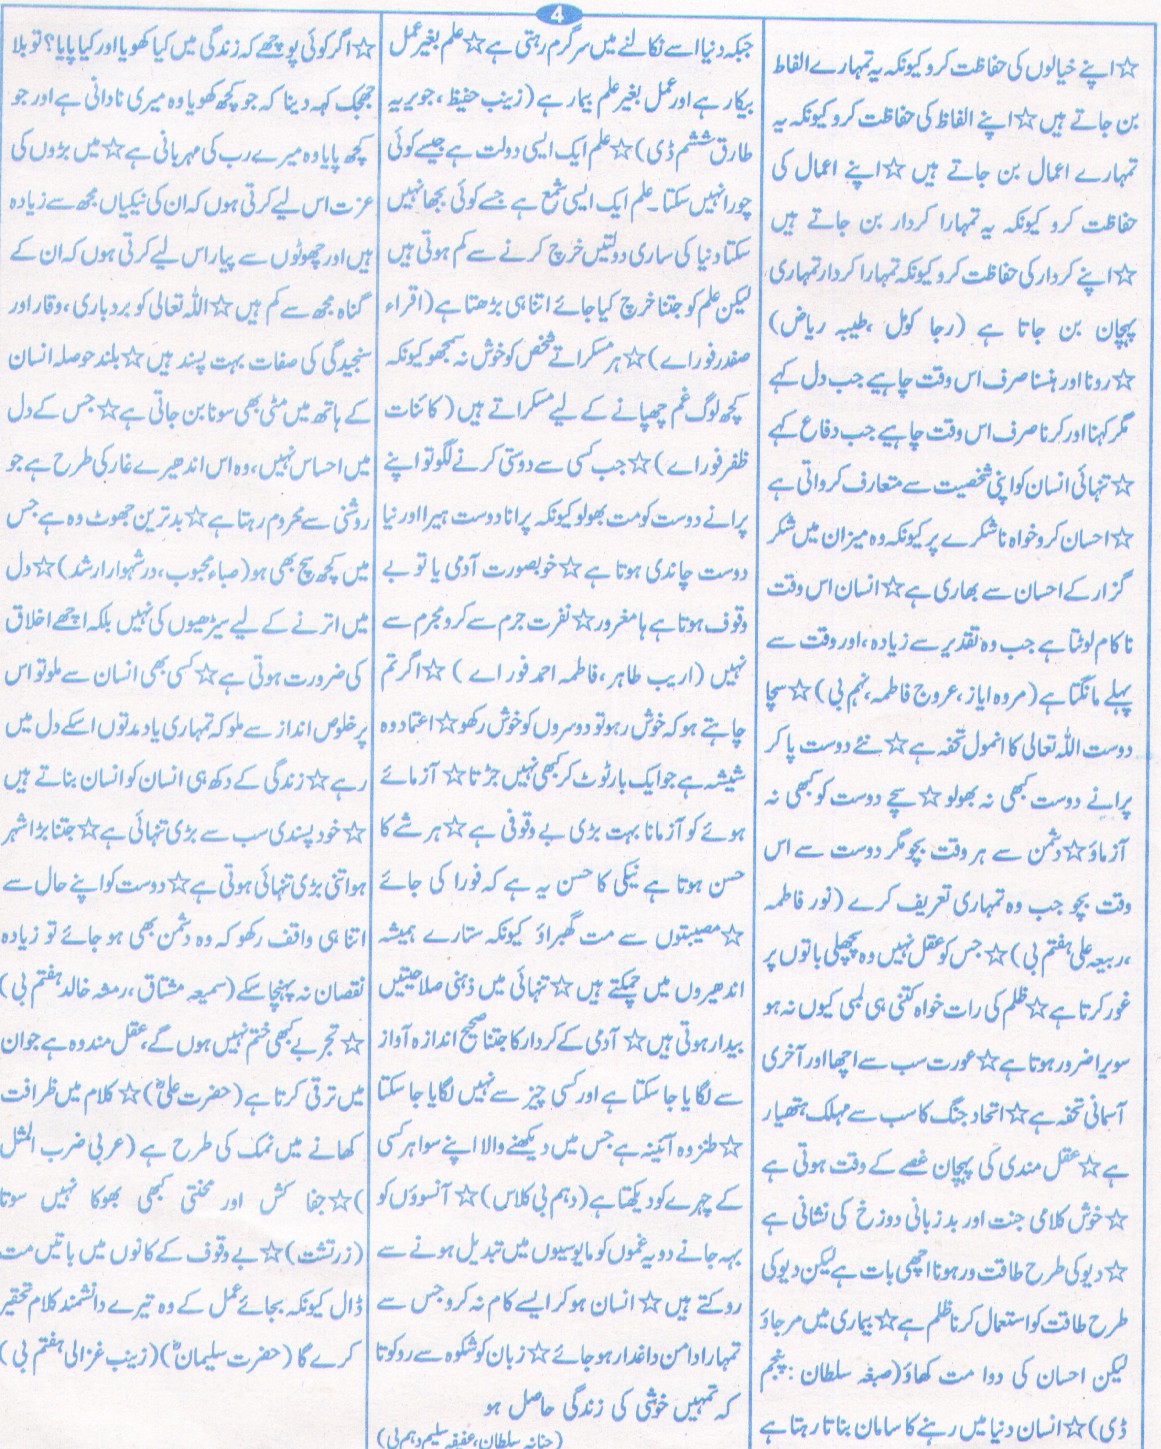 4
☆اپنے خیالوں کی حفاظت کرو کیونکہ یہ تمہارے الفاظ
بن جاتے ہیں☆اپنے الفاظ کی حفاظت کرو کیونکہ یہ
تمہارے اعمال بن جاتے ہیں ☆اپنے اعمال کی
حفاظت کرو کیونکہ یہ تمہارا کردار بن جاتے ہیں
☆اپنے کردار کی حفاظت کرو کیونکہ تمہارا کردار تمہاری
پہچان بن جاتا ہے (رجا کومل ،طیبہ ریاض)
☆رونا اور ہنسنا صرف اس وقت چاہیے جب دل کہے
مگر کہنا اور کرنا صرف اس وقت چاہیے جب دفاع کہے
☆تنہائی انسان کو اپنی شخصیت سے متعارف کرواتی ہے
☆احسان کرو خواہ ناشکرے پر کیونکہ وہ میزان میں شکر
گزار کے احسان سے بھاری ہے☆انسان اس وقت
ناکام لوٹتا ہے جب وہ تقدیر سے زیادہ ،اور وقت سے
پہلے مانگتا ہے (مروہ ایاز ،عروج فاطمہ ،نہم بی)☆سچا
دوست اللہ تعالی کا انمول تحفہ ہے☆نئے دوست پا کر
پرانے دوست کبھی نہ بھولو☆سچے دوست کو کبھی نہ
آزماؤ☆دشمن سے ہر وقت بچو مگر دوست سے اس
وقت بچو جب وہ تمہاری تعریف کرے (نور فاطمہ
،ربیعہ علی ہفتم بی)☆جس کو عقل نہیں وہ پچھلی باتوں پر
غور کرتا ہے☆ظلم کی رات خواہ کتنی ہی لمبی کیوں نہ ہو
سویرا ضرور ہوتا ہے☆عورت سب سے اچھا اور آخری
آسمانی تحفہ ہے☆اتحاد جنگ کا سب سے مہلک ہتھیار
ہے☆عقل مندی کی پہچان غصے کے وقت ہوتی ہے
☆خوش کلامی جنت اور بدزبانی دوزخ کی نشانی ہے
☆دیو کی طرح طاقت ور ہونا اچھی بات ہے لیکن دیو کی
طرح طاقت کو استعمال کرنا ظلم ہے☆بیماری میں مر جاؤ
لیکن احسان کی دوا مت کھاؤ(صبغہ سلطان :پنجم
ڈی)☆انسان دنیا میں رہنے کا سامان بناتا رہتا ہے
جبکہ دنیا اسے نکالنے میں سرگرم رہتی ہے☆علم بغیر عمل
بیکار ہے اور عمل بغیر علم بیمار ہے (زینب حفیظ ،جویریہ
طارق ششم ڈی)☆علم ایک ایسی دولت ہے جسے کوئی
چورا نہیں سکتا۔علم ایک ایسی شمع ہے جسے کوئی بجھا نہیں
سکتا دنیا کی ساری دولتیں خرچ کرنے سے کم ہوتی ہیں
لیکن علم کو جتنا خرچ کیا جائے اتنا ہی بڑھتا ہے (اقراء
صفدر فور اے)☆ہر مسکراتے شخص کو خوش نہ سمجھو کیونکہ
کچھ لوگ غم چھپانے کے لیے مسکراتے ہیں (کائنات
ظفر فور اے)☆جب کسی سے دوستی کرنے لگو تو اپنے
پرانے دوست کو مت بھولو کیونکہ پرانا دوست ہیرا اور نیا
دوست چاندی ہوتا ہے☆خوبصورت آدمی یا تو بے
وقوف ہوتا ہے یا مغرور☆نفرت جرم سے کرو مجرم سے
نہیں (اریب طاہر ،فاطمہ احمد فور اے ) ☆اگر تم
چاہتے ہو کہ خوش رہو تو دوسروں کو خوش رکھو☆اعتماد وہ
شیشہ ہے جو ایک بار ٹوٹ کر کبھی نہیں جڑتا☆ آزمائے
ہوئے کو آزمانا بہت بڑی بے وقوفی ہے☆ہر شے کا
حسن ہوتا ہے نیکی کا حسن یہ ہے کہ فورا کی جائے
☆مصیبتوں سے مت گھبراؤ کیونکہ ستارے ہمیشہ
اندھیروں میں چمکتے ہیں☆تنہائی میں ذہنی صلاحیتیں
بیدار ہوتی ہیں☆ آدمی کے کردار کا جتنا صحیح اندازہ آواز
سے لگایا جا سکتا ہے اور کسی چیز سے نہیں لگایا جا سکتا
☆طنز وہ آئینہ ہے جس میں دیکھنے والا اپنے سوا ہر کسی
کے چہرے کو دیکھتا ہے (دہم بی کلاس)☆ آنسوؤں کو
بہہ جانے دو یہ غموں کو مایوسیوں میں تبدیل ہونے سے
روکتے ہیں☆ انسان ہو کر ایسے کام نہ کرو جس سے
تمہارا دامن داغدار ہو جائے☆زبان کو شکوہ سے روکو تا
کہ تمہیں خوشی کی زندگی حاصل ہو
(حنانہ سلطان، عفیفہ سلیم دہم بی)
☆اگر کوئی پوچھے کہ زندگی میں کیا کھویا اور کیا پایا؟ تو بلا
جھجک کہہ دینا کہ جو کچھ کھویا وہ میری نادانی ہے اور جو
کچھ پایا وہ میرے رب کی مہربانی ہے☆میں بڑوں کی
عزت اس لیے کرتی ہوں کہ ان کی نیکیاں مجھ سے زیادہ
ہیں اور چھوٹوں سے پیار اس لیے کرتی ہوں کہ ان کے
گناہ مجھ سے کم ہیں☆اللہ تعالی کو بردباری ،وقار اور
سنجیدگی کی صفات بہت پسند ہیں☆بلند حوصلہ انسان
کے ہاتھ میں مٹی بھی سونا بن جاتی ہے☆جس کے دل
میں احساس نہیں ،وہ اس اندھیرے غار کی طرح ہے جو
روشنی سے محروم رہتا ہے☆بدترین جھوٹ وہ ہے جس
میں کچھ سچ بھی ہو (صباء محبوب، درشہوار ارشد)☆دل
میں اترنے کے لیے سیڑھیوں کی نہیں بلکہ اچھے اخلاق
کی ضرورت ہوتی ہے☆کسی بھی انسان سے ملو تو اس
پر خلوص انداز سے ملو کہ تمہاری یاد مدتوں اسکے دل میں
رہے☆زندگی کے دکھ ہی انسان کو انسان بناتے ہیں
☆خود پسندی سب سے بڑی تنہائی ہے☆جتنا بڑا شہر
ہو اتنی بڑی تنہائی ہوتی ہے☆دوست کو اپنے حال سے
اتنا ہی واقف رکھو کہ وہ دشمن بھی ہو جائے تو زیادہ
نقصان نہ پہنچا سکے (سمیعہ مشتاق ،رمشہ خالد ہفتم بی)
☆تجربے کبھی ختم نہیں ہوں گے ،عقل مند وہ ہے جو ان
میں ترقی کرتا ہے (حضرت علیؓ)☆ کلام میں ظرافت
کھانے میں نمک کی طرح ہے (عربی ضرب المثل
)☆جفا کش اور محنتی کبھی بھوکا نہیں سوتا
(زرتشت)☆بے وقوف کے کانوں میں باتیں مت
ڈال کیونکہ بجائے عمل کے وہ تیرے دانشمند کلام تحقیر
کرے گا (حضرت سلیمانؑ)(زینب غزالی ہفتم بی)